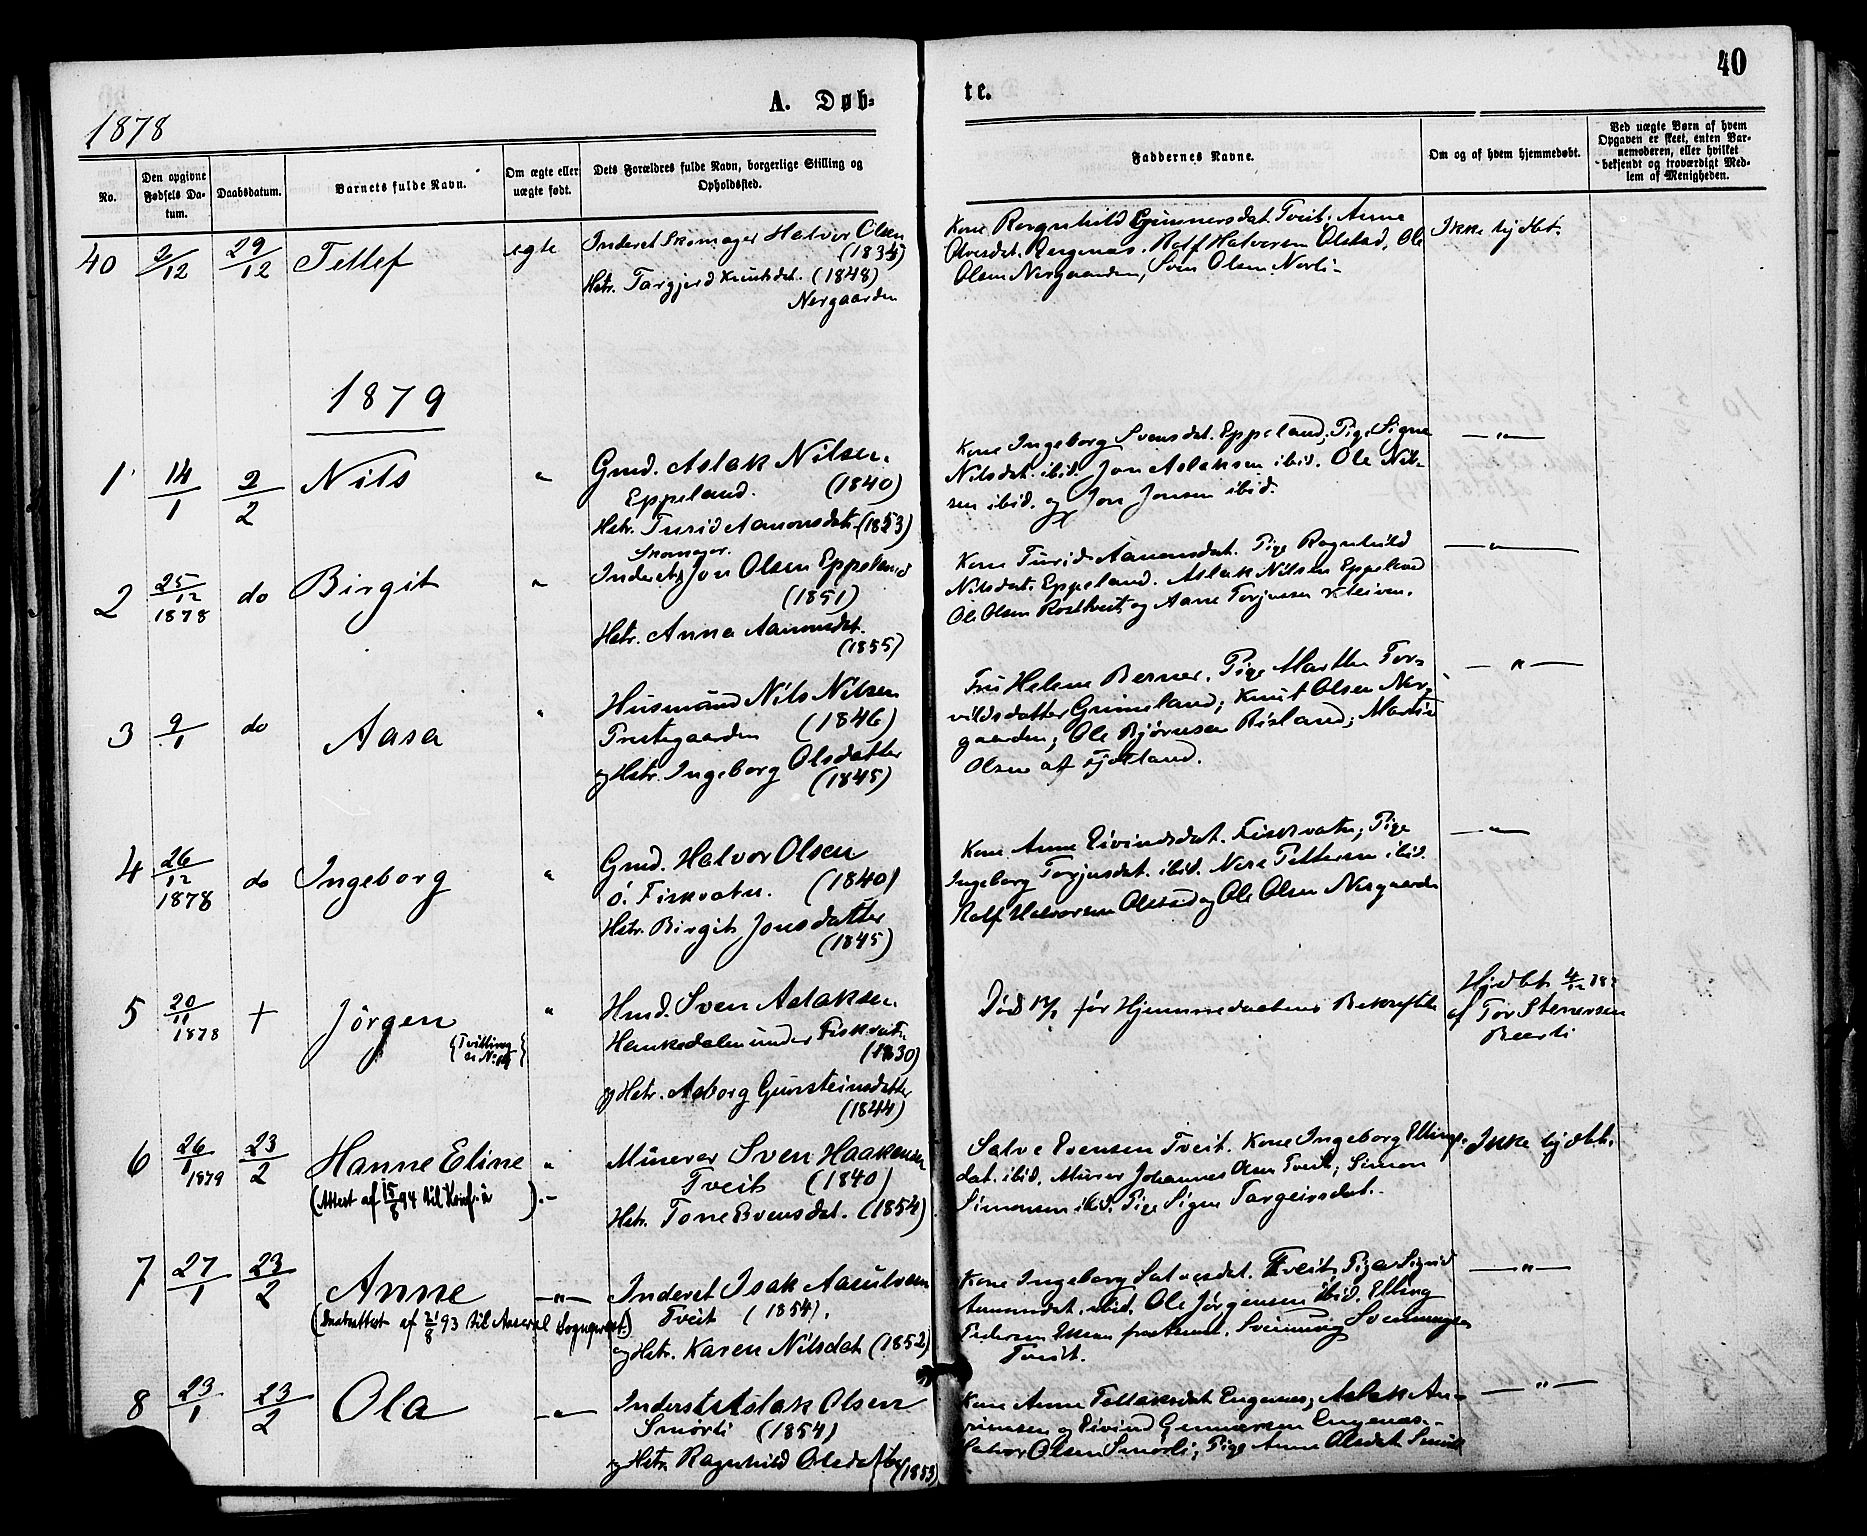 40
A. Døb-
te.
1878
No.
Den opgivne Fødsels Datum.
Daabsdatum.
Barnets fulde Navn.
Om ægte eller uægte født.
Dets Forældres fulde Navn, borgerlige Stilling og Opholdssted.
Faddernes Navne.
Om og af hvem hjemmedøbt.
Ved uægte Børn af hvem Opgaven er skeet, enten Barnemoderen, eller hvilket bekjendt og troværdigt Medlem af Menigheden.
40 2/12 29/12 Tellef ægte
Inderst Skomager Halvor Olsen
(1834)
Hstr. Targjerd Knutsdat. (1848)
Nergaarden
Kone Ragnhild Gunnersdat. Tveit. Anne
Olvesdat. Engenæs. Rolf Halvorsen Olstad, Ole
Olsen Nergaarden, Sven Olsen Norli
Ikke hjdbt.
1879
1 14/1 2/2 Nils "
Gmd. Aslak Nilsen.
Eppeland. (1840)
Hstr. Turid Aamonsdat. (1853)
Kone Ingeborg Svensdat. Eppeland; Pige Signe
Nilsdat. ibid. Jon Aslaksen ibid. Ole Nil-
sen ibid. og Jon Jonsen ibid.
— " —
2 25/12 1878 do Birgit "
Skomager.
Inderst Jon Olsen Eppeland
(1851)
Hstr. Anne Aamonsdat.
(1855)
Kone Turid Aamonsdat. Pige Ragnhild
Nilsdat. Eppeland. Aslak Nilsen Eppeland
Ole Olsen Rosthveit og Aane Torjussen Kleiven.
— " —
3 9/1 do Aasa "
Husmand Nils Nilsen
Prestegaarden (1846)
og Hstr. Ingeborg Olsdatter
(1845)
Fru Helene Berner. Pige Marthe Tor-
vildsdatter Grimeland; Knut Olsen Ner-
gaarden; Ole Bjørnsen Risland; Martin
Olsen af Fjotland.
— " —
4 26/12 1878 do Ingeborg "
Gmd. Halvor Olsen
ö. Fiskvatn. (1840)
Hstr. Birgit Jonsdatter
(1845)
Kone Anne Eivindsdat. Fiskvatn; Pige
Ingeborg Torjusdat. ibid. Pettersen ibid.
Rolf Halvorsen Olstad og Ole Olsen Nergaarden
— " —
5 20/11 1878 + Jörgen "
{Tvilling
Hmd. Sven Aslaksen.
Hankedalen under Fiskvatn
(1830)
og Hstr. Asborg Gunsteinsdatter
(1844)
Död før Hjemmedaabens Bekræftelse
Hjdbt 4/12
af Tor Stenersen
6 26/1 1879 23/2 Hanne Eline "
(Attest af 15/8 94 til Konf.) . –
Minerer Sven Haakensen
Tveit (1840)
Hstr. Tone Evensdat. (1854)
Salve Evensen Tveit. Kone Ingeborg Ellings-
dat. ibid. Murer Johannes Olsen Tveit; Simon
Simonsen ibid. Pige Signe Targeirsdat.
Ikke hjdbt.
7 27/1 23/2 Anne — " —
(Daabsattest af 21/8 93 til Aaseral Sogneprest.)
Inderst Isak Aasulvsen
Tveit (1854).
og Hstr. Karen Nilsdat (1852)
Kone Ingeborg Salvesdat. Tveit, Pige Sigrid
Aamundsdat. ibid. Ole Jörgensen ibid. Elling
Pedersen Svenning Svenningsen
Tveit.
— " —
8 23/1 23/2 Ola — " —
Inderst Aslak Olsen
Smörli (1854)
og Hstr. Ragnhild Olsdatter (1853)
Kone Anne Tellefsdat Engenes; Aslak An-
Eivind Gunnarsen Engenæs.
Halvor Olsen Smörli; Pige Anne Olsdat Smörli
— " —